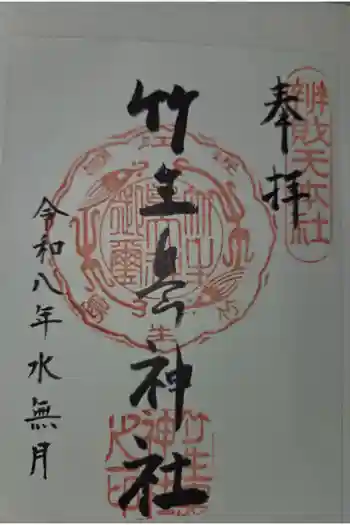 奉拝
辨財天本社
竹生島神社
令和八年水無月
竹生島神社之印